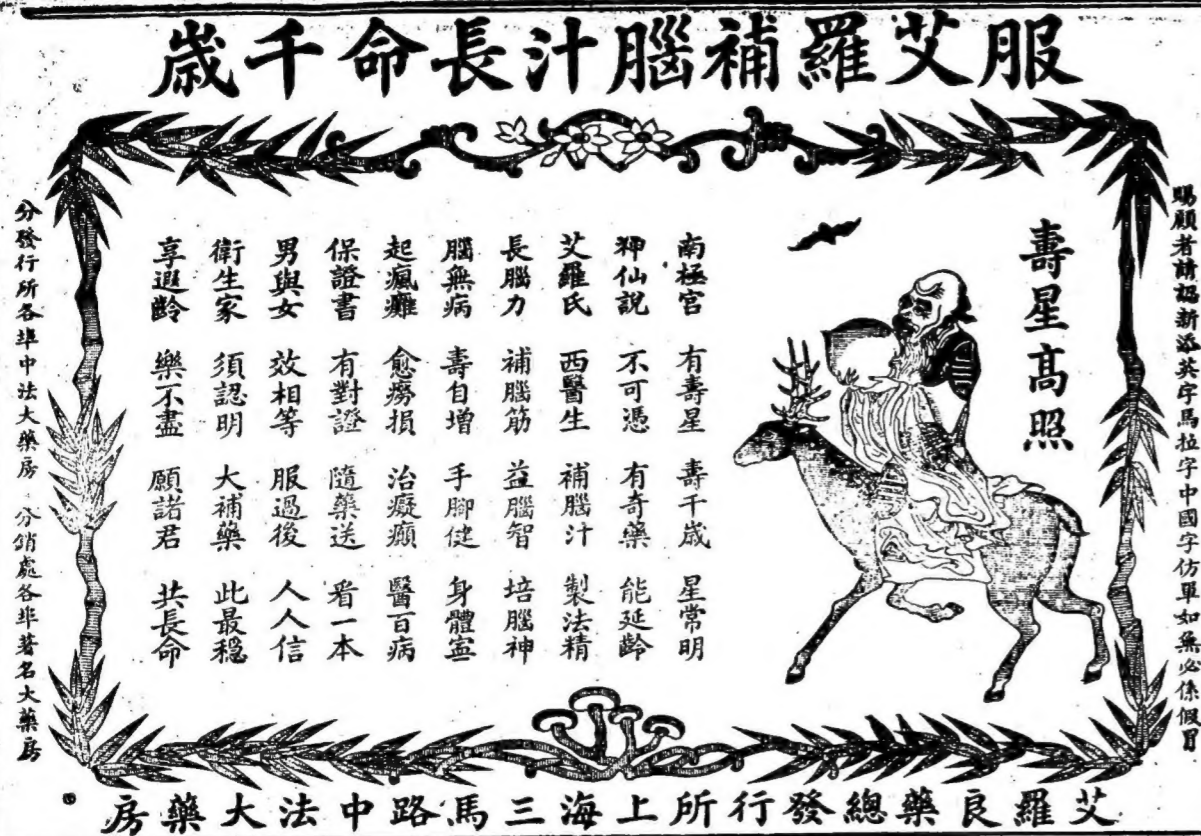 服艾羅補腦汁長命千歲
賜顧者請認新添英字馬拉字中國字仿單如無必係假冒
壽星高照
南極宮 有壽星 壽千歲 星常明
神仙說 不可憑 有奇藥 能延齡
艾羅氏 西醫生 補腦汁 製法精
長腦力 補腦筋 益腦智 培腦神
腦無病 壽自增 手腳健 身體寍
起瘋癱 愈癆損 治癡癲 醫百病
保證書 有對證 隨藥送 看一本
男與女 效相等 服過後 人人信
衛生家 須認明 大補藥 此最穩
享遐齡 樂不盡 願諸君 共長命
分發行所各埠中法大藥房 分銷處各埠著名大藥房
艾羅良藥總發行所上海三馬路中法大藥房